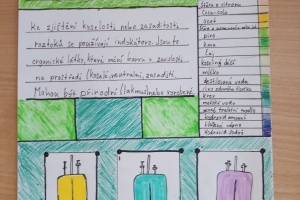 Ke zjištění kyselosti nebo zásaditosti
roztoků se používají indikátory. Jsou to
organické látky, které mění barvu v závislosti
na prostředí (kyselé, neutrální, zásadité).
Mohou být přírodní (lakmus) nebo vyrobené.
Šťáva z citronu
Coca-cola
ocet
pivo
káva
čaj
kyselina dešť
mléko
destilovaná voda
krev
mořská voda
hydroxid sodný